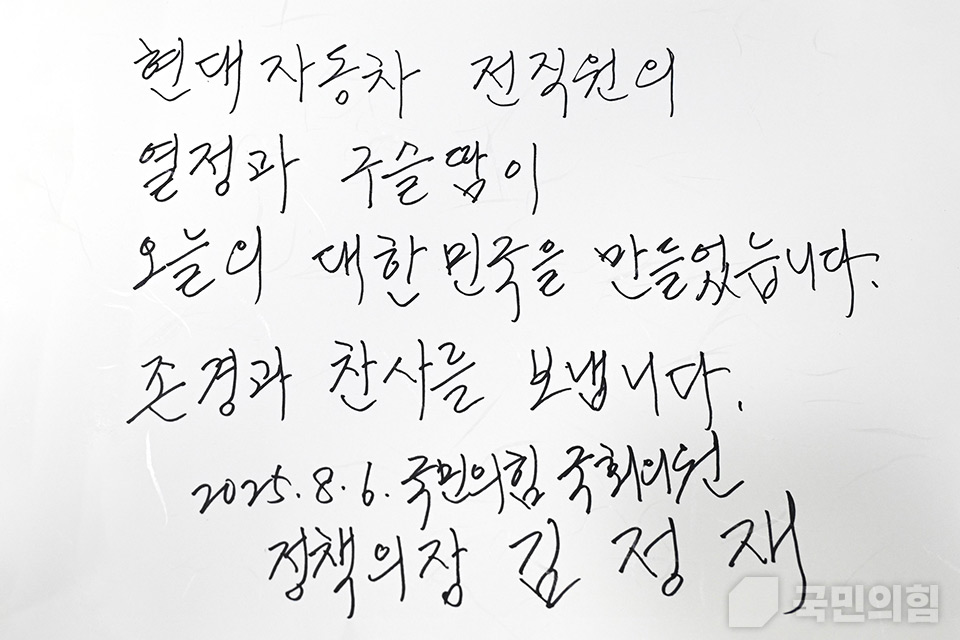 현대자동차 전직원의
열정과 구슬땀이
오늘의 대한민국을 만들었습니다.
존경과 찬사를 보냅니다.
2025.8.6. 국민의힘 국회의원
정책의장 김정재
국민의힘